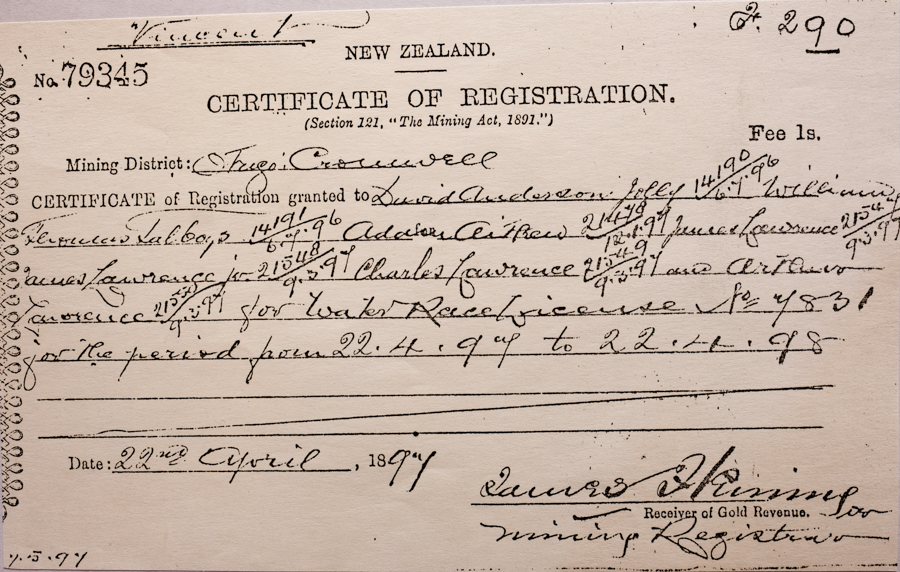 Vincent
290
NEW ZEALAND.
No. 79345
CERTIFICATE OF REGISTRATION.
(Section 121, "The Mining Act, 1891.")
Fee 1s.
Mining District: Cromwell
CERTIFICATE of Registration granted to David Anderson Jolly 14190/6.7.96 William
Thomas 14191/6.7.96 Adam Aitken 21478/12.1.97 James Lawrence 21547/9.3.97
James Lawrence jr 21548/9.3.97 Charles Lawrence 21549/9.3.97 and Arthur
Lawrence 21550/9.3.97 for Water Race License No 7831
for the period from 22.4.97 to 22.4.98
Date: 22nd April, 1897
James Fleming
Receiver of Gold Revenue. for
Mining Registrar
7.5.97